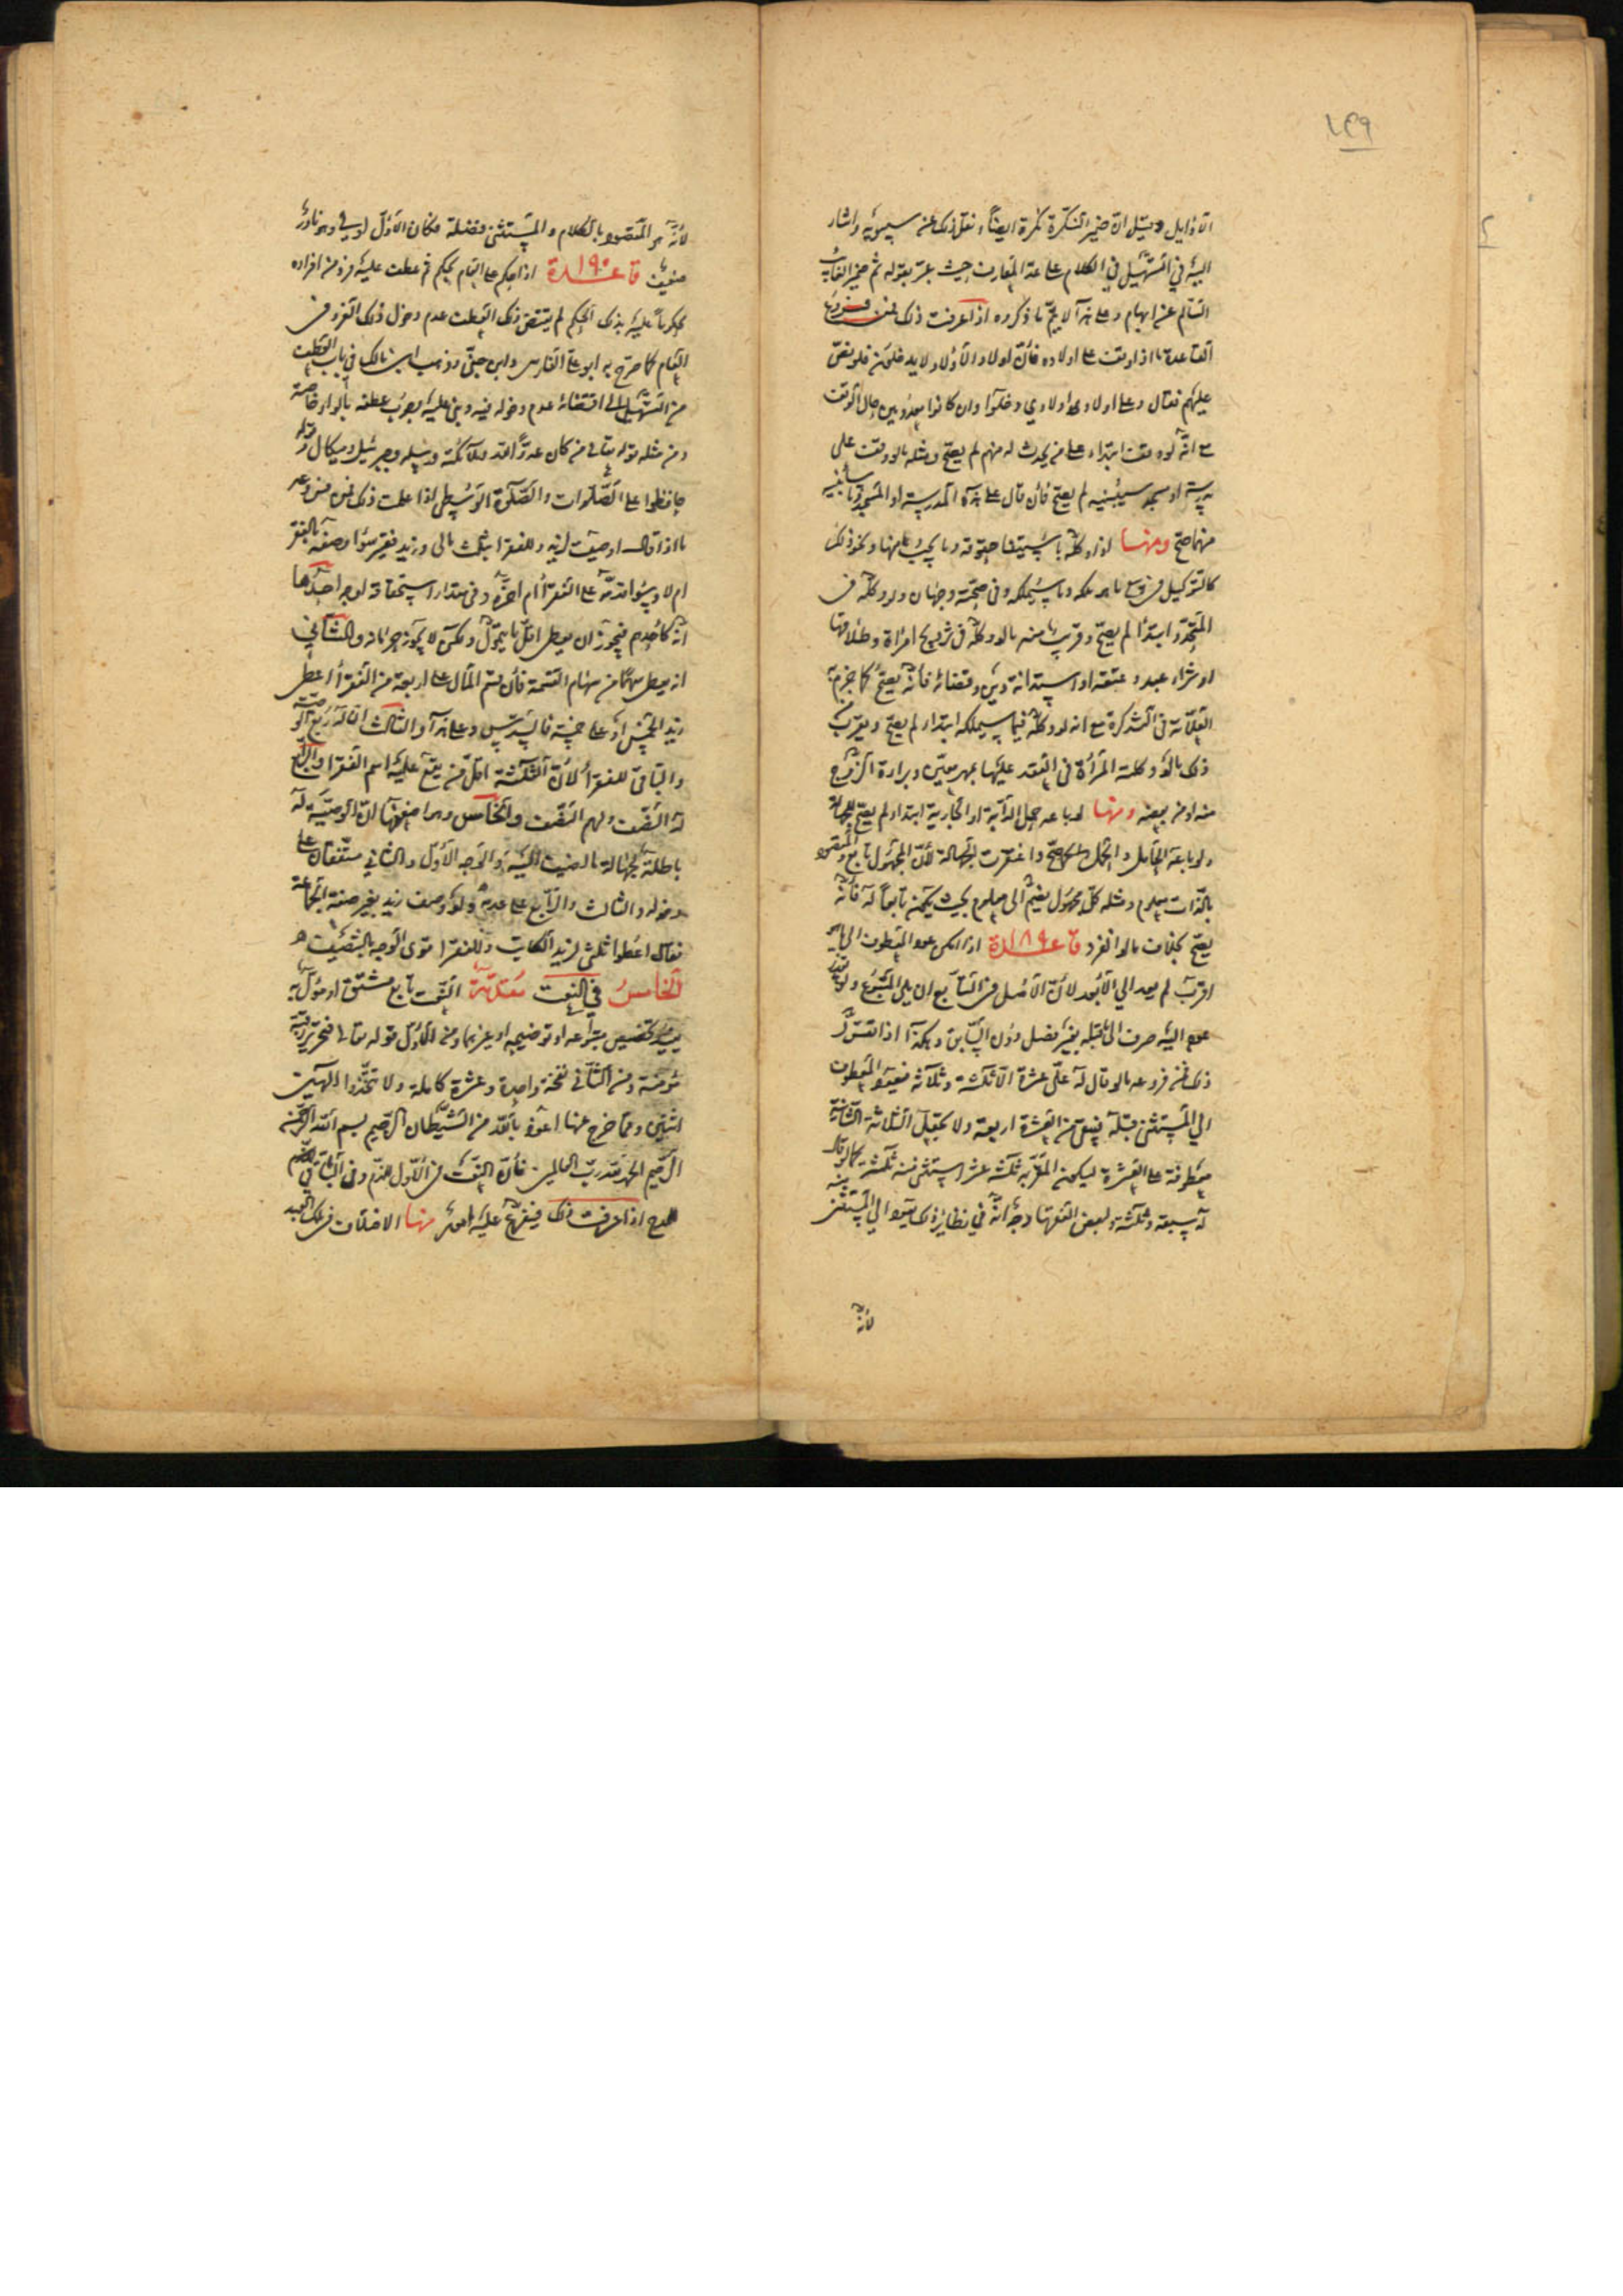 ١٤٩
الاوايل وقيل ان ضمير النكرة نكرة ايضاً ونقل ذلك عن سيبويه واشار
اليه في التسهيل في الكلام على عد المعارف حيث عبر بقوله ثم ضمير الغائب
السالم عن ابهام وعلى هذا لا يتم ما ذكروه اذا عرفت ذلك فمن فروع
القاعدة ما اذا وقف على اولاده فان اولاد الاولاد لا يدخلون فلو نص
عليهم فقال وعلى اولاد اولادي دخلوا وان كانوا معدومين حال الوقف
مع انه لو وقف ابتداء على من يحدث له منهم لم يصح ومثله ما لو وقف على
مدرسة او مسجد سيبنيه لم يصح فان قال على هذه المدرسة او المسجد وما سابنيه
منهما صح ومنها اذا وكله باستيفاء حقوقه وما يجب منها ونحو ذلك
كالتوكيل في بيع ما هو ملكه وما سيملكه وفي صحته وجهان ولو وكله في
المتجدد ابتداء لم يصح وقريب منه ما لو وكله في تزويج امرأة وطلاقها
او شراء عبد وعتقه او استدانة دين وقضائه فانه يصح كما جزم به
العلامة في التذكرة مع انه لو وكله فيما سيملكه ابتداء لم يصح ويقرب من
ذلك ما لو وكلته المرأة في العقد عليها بمهر معين وبراءة الزوج
منه او من بعضه ومنها لو باعه حمل الدابة او الجارية ابتداء لم يصح للجهالة
ولو باعه الحامل والحمل معها صح واغتفرت الجهالة لان المجهول تابع والمقصود
بالذات معلوم ومثله كل مجهول يضم الى معلوم بحيث يكون تابعاً له فانه
يصح بخلاف ما لو انفرد قاعدة ١٨٩ اذا امكن عود المعطوف الى ما هو
اقرب لم يعد الى الابعد لان الاصل في التابع ان يلي المتبوع ولو تعذر
عوده اليه صرف الى ما قبله بغير فصل دون السابق وهكذا اذا تقرر
ذلك فمن فروعه ما لو قال له علي عشرة الا ثلثة وثلاثة فيعود المعطوف
الى المستثنى قبله فيبقى من العشرة اربعة ولا تجعل الثلاثة الثانية
معطوفة على العشرة ليكون المقر به ثلثة عشر استثنى منه ثلثة كما لو قال
له سبعة وثلثة ولبعض الفقهاء وجه انه في نظائر ذلك يعود الى المستثنى منه
لانه
لانه هو المقصود بالكلام والمستثنى فضلة فكان الاول اولى وهو نادر
ضعيف قاعدة ١٩٠ اذا حكم على العام بحكم ثم عطف عليه فرد من افراده
محكوماً عليه بذلك الحكم لم يقتض ذلك العطف عدم دخول ذلك الفرد في
العام كما صرح به ابو علي الفارسي وابن جني وذهب ابن مالك في باب العطف
من التسهيل الى اقتضائه عدم دخوله فيه وبنى عليه وجوب عطفه بالواو خاصة
ومن مثله قوله تعالى من كان عدوا لله وملائكته ورسله وجبرئيل وميكال وقوله
حافظوا على الصلوات والصلوة الوسطى اذا علمت ذلك فمن فروعه
ما اذا قال اوصيت لزيد وللفقراء بثلث مالي وزيد فقير سواء وصفه بالفقر
ام لا وسواء قدمه على الفقراء ام اخره وفي مقدار استحقاقه اوجه احدها
انه كاحدهم فيجوز ان يعطى اقل ما يتمول ولكن لا يجوز حرمانه والثاني
انه يعطى سهما من سهام القسمة فان قسم المال على اربعة من الفقراء اعطي
زيد الخمس او على خمسة فالسدس وعلى هذا والثالث ان له ربع الوصية
والباقي للفقراء لان الثلثة اقل من يقع عليه اسم الفقراء والرابع
له النصف ولهم النصف والخامس وهو اضعفها ان الوصية له
باطلة لجهالة ما اضيف اليه والوجه الاول والثاني متفقان على
دخوله والثالث والرابع على عدمه ولو وصف زيد بغير صفة الجماعة
فقال اعطوا ثلثي لزيد الكاتب وللفقراء قوى الوجه بالتنصيف
الخامس في النعت مقدمة النعت تابع مشتق او مؤل به
يفيد تخصيص متبوعه او توضيحه او غيرهما ومن الاول قوله تعالى فتحرير رقبة
مؤمنة ومن الثاني نفخة واحدة وعشرة كاملة ولا تتخذوا الهين
اثنين ومما خرج عنها اعوذ بالله من الشيطان الرجيم بسم الله الرحمن
الرحيم الحمد لله رب العالمين فان النعت في الاول للذم وفي الباقي
للمدح اذا عرفت ذلك فيتفرع عليه امور منها الاختلاف في ملك العبد